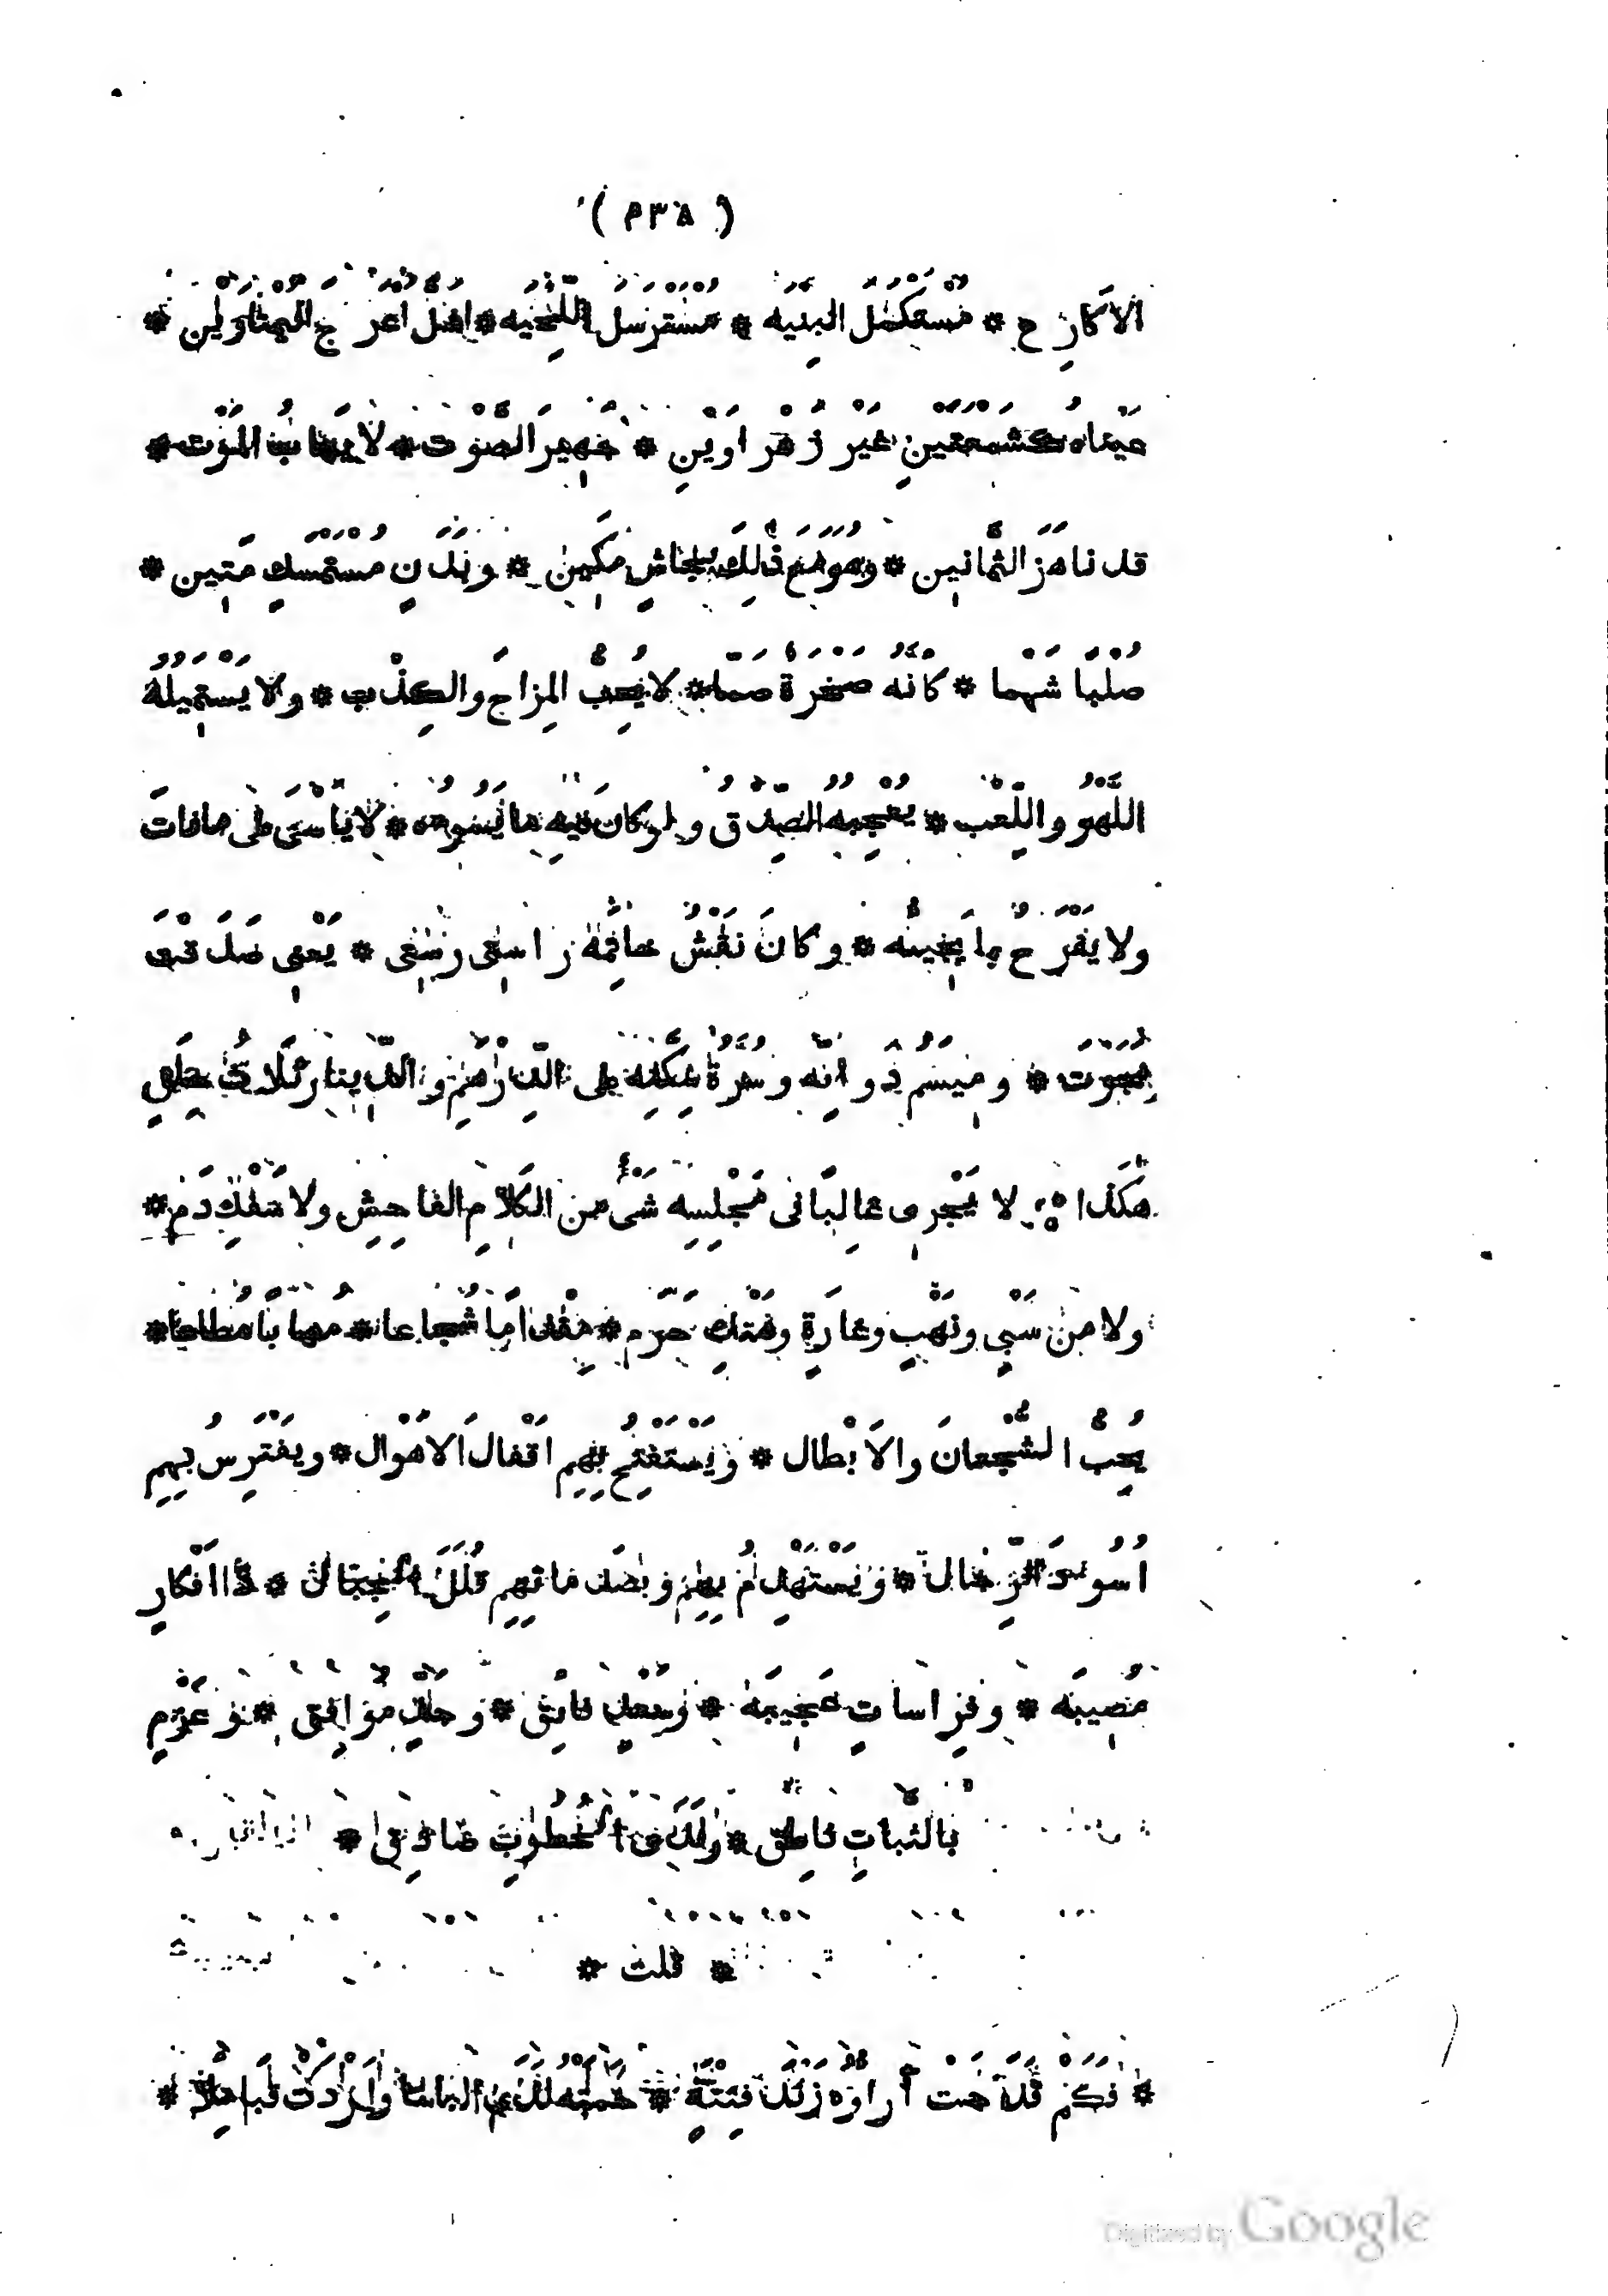 ( ٣٣٨ )
الاَكَارِح * مُسْتَكْمِلُ البِنْيَه * مُسْتَرْسِلُ اللِّحْيَه * اشل اعرج اليمناوين *
عيناه كشمعتين غير زهراوين * جهير الصوت * لا يهاب الموت *
قد ناهز الثمانين * وهو مع ذلك بجاش مكين * وبدن مستمسك متين *
صُلْبًا شَهْمًا * كانه صخرة صما * لا يُحِبُّ المِزاح والكِذْب * ولا يستميله
اللهو واللعب * يعجبه الصدق ولو كان فيه ما يسوءه * لا ياسى على ما فات
ولا يفرح بما يجيئه * وكان نقش خاتمه راستى رستى * يعنى صدقت
نجوت * وميسم دوابه وسرة سكته على الدرهم والدينار ثلاث حلق
هكذا لا يجرى غالبا فى مجلسه شئ من الكلام الفاحش ولا سفك دم *
ولا من سبي ونهب وغارة وهتك حرم * مقداما شجاعا * مهابا مطاعا *
يحب الشجعان والابطال * ويستفتح بهم اقفال الاهوال * ويفترس بهم
اسود الرجال * ويستهدم بهم وبصدماتهم قلل الجبال * ذا افكار
مصيبه * وفراسات عجيبه * وسعد فائق * وجد موافق * وعزم
بالثبات ناطق * ولدى الخطوب صادق *
* قلت *
* فكم قدحت آراؤه زند فتنة * حمته لدى الباسا واردت قبائلا *
Digitized by Google